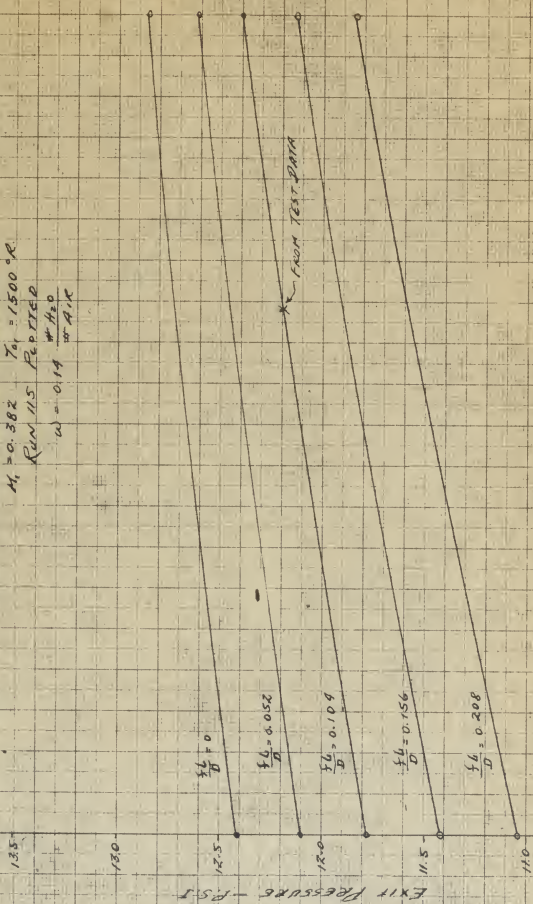 M₁ = 0.382 T₀₁ = 1500 °R
RUN 115 PLOTTED
ω = 0.14 # H₂O / # AIR
FROM TEST DATA
fL/D = 0
fL/D = 0.052
fL/D = 0.104
fL/D = 0.156
fL/D = 0.208
13.5
13.0
12.5
12.0
11.5
11.0
EXIT PRESSURE - P.S.I